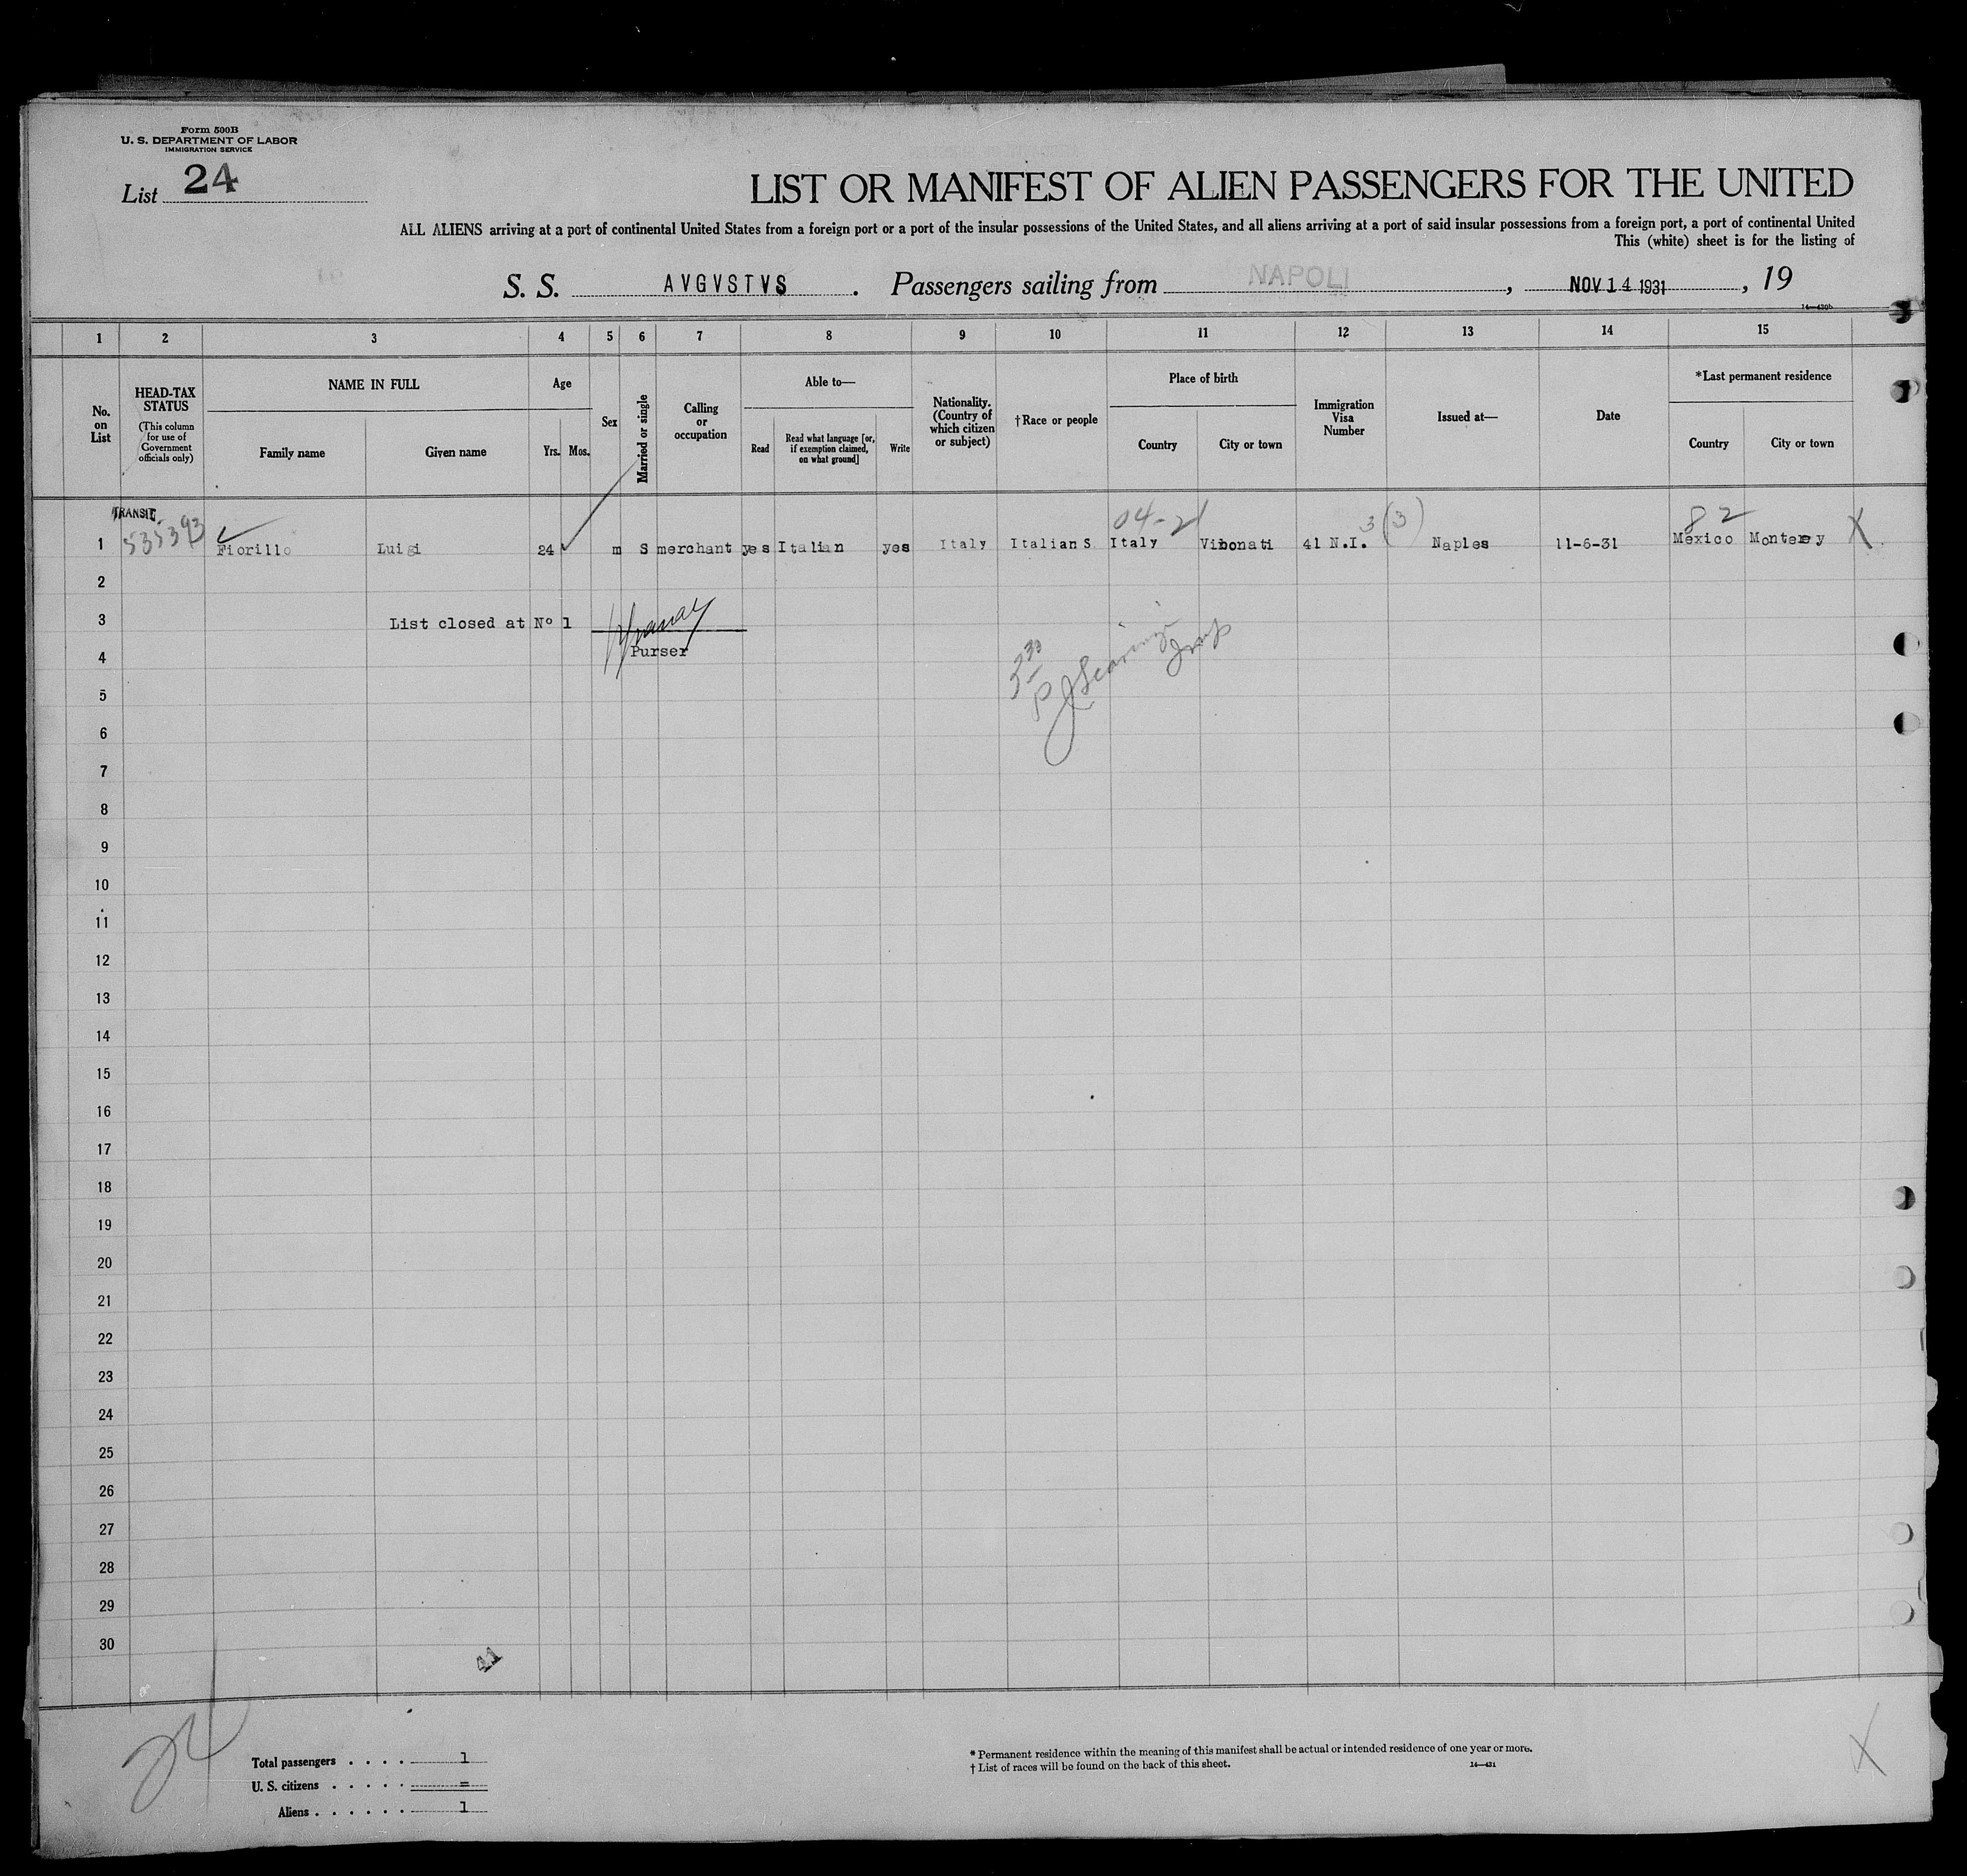 Form 500B
U. S. DEPARTMENT OF LABOR
IMMIGRATION SERVICE
List 24
LIST OR MANIFEST OF ALIEN PASSENGERS FOR THE UNITED
ALL ALIENS arriving at a port of continental United States from a foreign port or a port of the insular possessions of the United States, and all aliens arriving at a port of said insular possessions from a foreign port, a port of continental United
This (white) sheet is for the listing of
S. S. AVGVSTVS. Passengers sailing from NAPOLI, NOV 14 1931, 19
14—430b
1 2 3 4 5 6 7 8 9 10 11 12 13 14 15
No. on List
HEAD-TAX STATUS
(This column for use of Government officials only)
NAME IN FULL
Family name
Given name
Age
Yrs. Mos.
Sex
Married or single
Calling or occupation
Able to—
Read
Read what language [or, if exemption claimed, on what ground]
Write
Nationality. (Country of which citizen or subject)
†Race or people
Place of birth
Country
City or town
Immigration Visa Number
Issued at—
Date
*Last permanent residence
Country
City or town
TRANSIT
04-21 3 (3) 82
1 Fiorillo Luigi 24 m S merchant yes Italian yes Italy Italian S Italy Vibonati 41 N.I. Naples 11-6-31 Mexico Monterey X
2
3 List closed at Nº 1
4 Purser
5
6
7
8
9
10
11
12
13
14
15
16
17
18
19
20
21
22
23
24
25
26
27
28
29
30
41
24
Total passengers . . . . 1
U. S. citizens . . . . . =
Aliens . . . . . . 1
* Permanent residence within the meaning of this manifest shall be actual or intended residence of one year or more.
† List of races will be found on the back of this sheet.
14—431
X